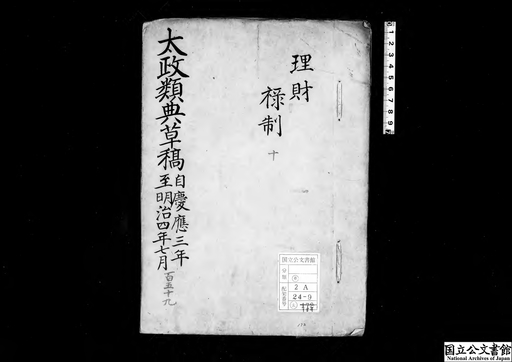 理財
禄制
十
太政類典草稿
自慶應三年
至明治四年七月
百五十九
国立公文書館
分類
配架番号
2 A
24-9
1 2 3 4 5 6 7 8 9
国立公文書館
National Archives of Japan